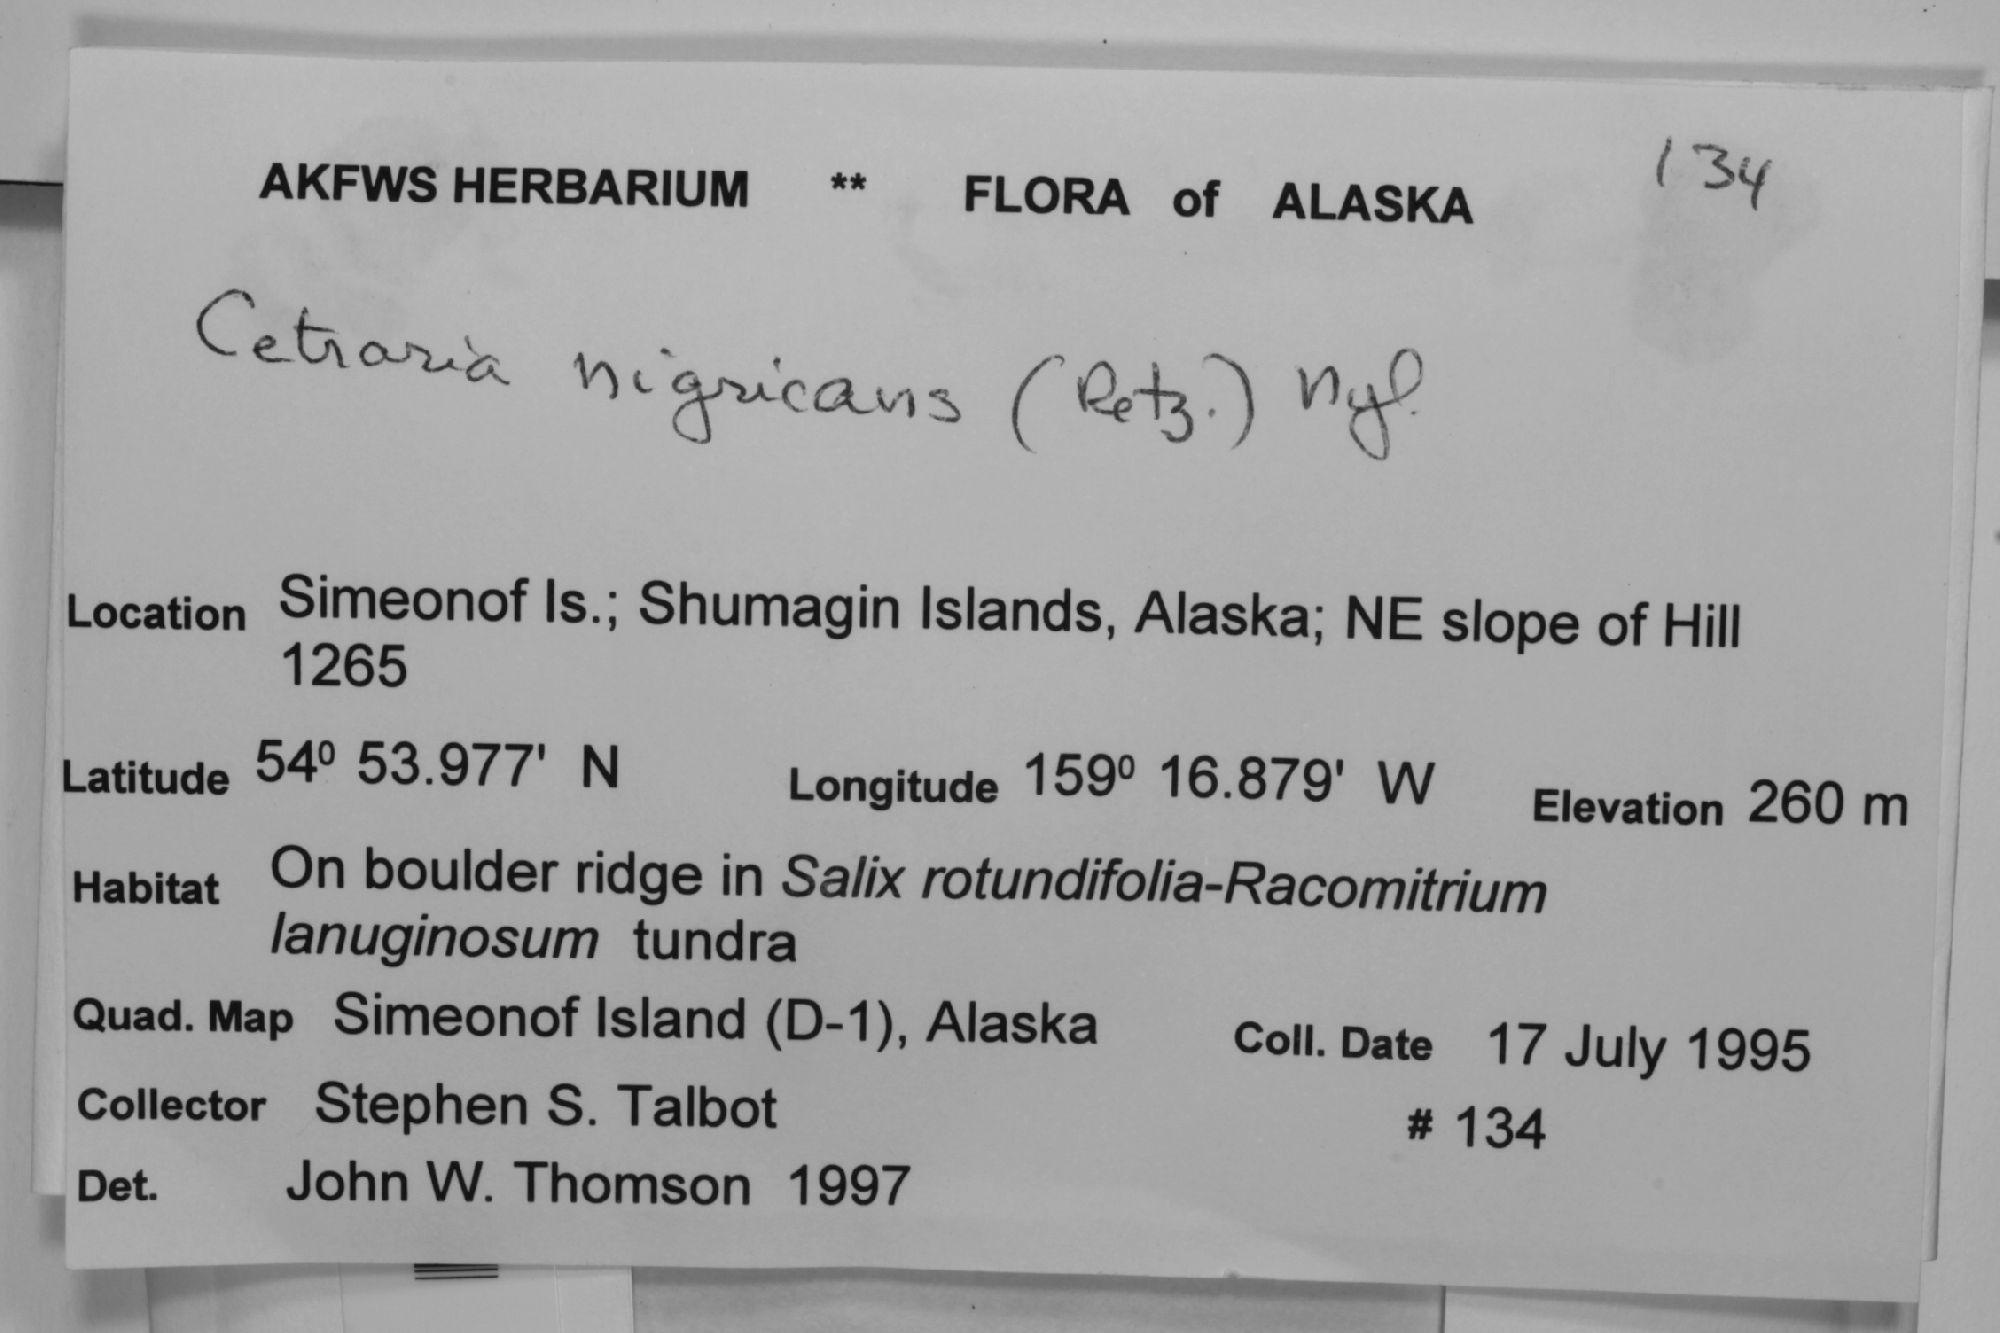 134
AKFWS HERBARIUM ** FLORA of ALASKA
Cetraria nigricans (Retz.) Nyl.
Location Simeonof Is.; Shumagin Islands, Alaska; NE slope of Hill
1265
Latitude 54⁰ 53.977' N Longitude 159⁰ 16.879' W Elevation 260 m
Habitat On boulder ridge in Salix rotundifolia-Racomitrium
lanuginosum tundra
Quad. Map Simeonof Island (D-1), Alaska Coll. Date 17 July 1995
Collector Stephen S. Talbot # 134
Det. John W. Thomson 1997